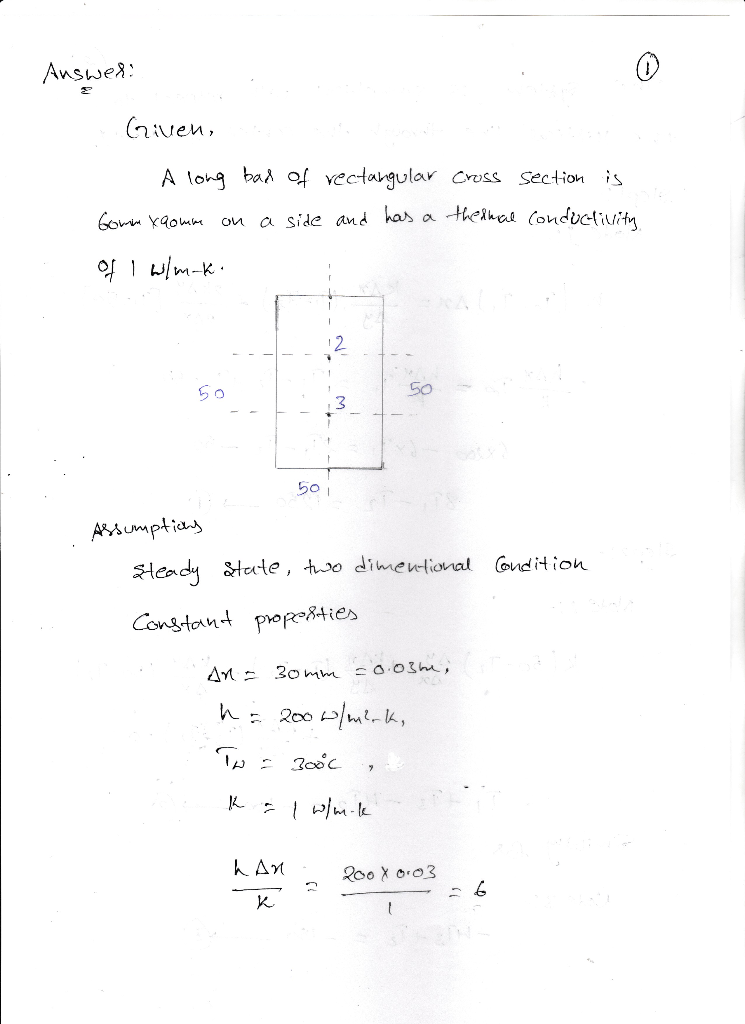 Answer:
1
Given,
A long bar of rectangular cross section is
60mm x90mm on a side and has a thermal conductivity
of 1 w/m-k.
2
50
50
3
50
Assumptions
Steady State, two dimentional Condition
Constant properties
Δx = 30mm = 0.03m,
h = 200 w/m²-k,
T∞ = 300°C ,
k = 1 w/m-k
hΔx / k = 200 x 0.03 / 1 = 6